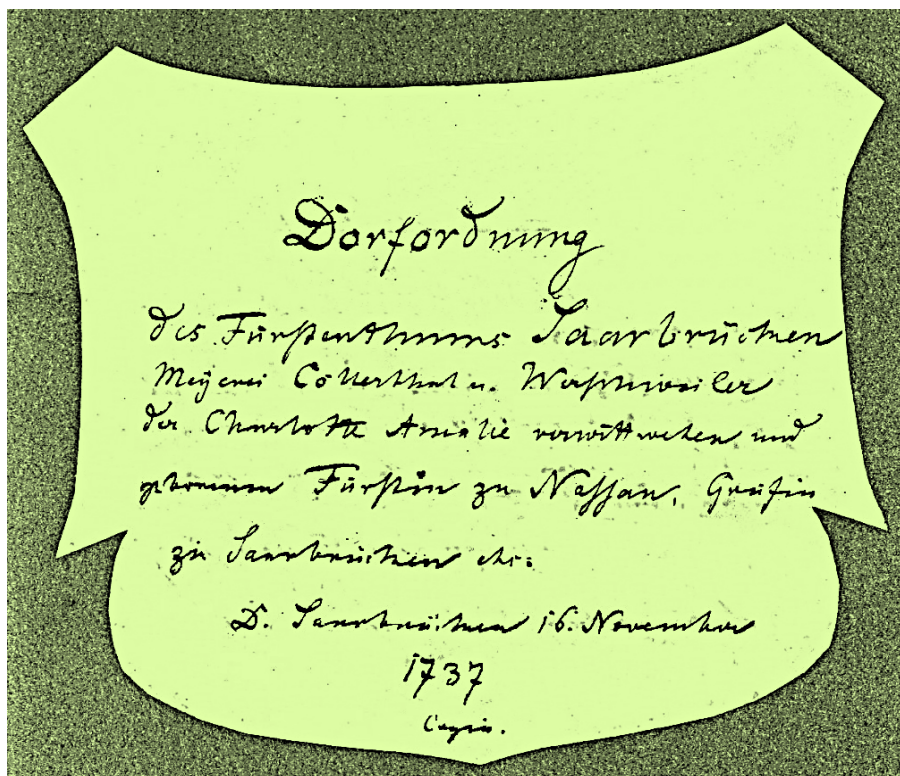 Dorfordnung
des Fürstenthums Saarbrücken
Meÿerei Cöllerthal u. Wahlschied
der Charlotte Amalie verwittweten und
gebornen Fürstin zu Nassau, Gräfin
zu Saarbrücken etc:
D. Saarbrücken 16. November
1737
Copia.